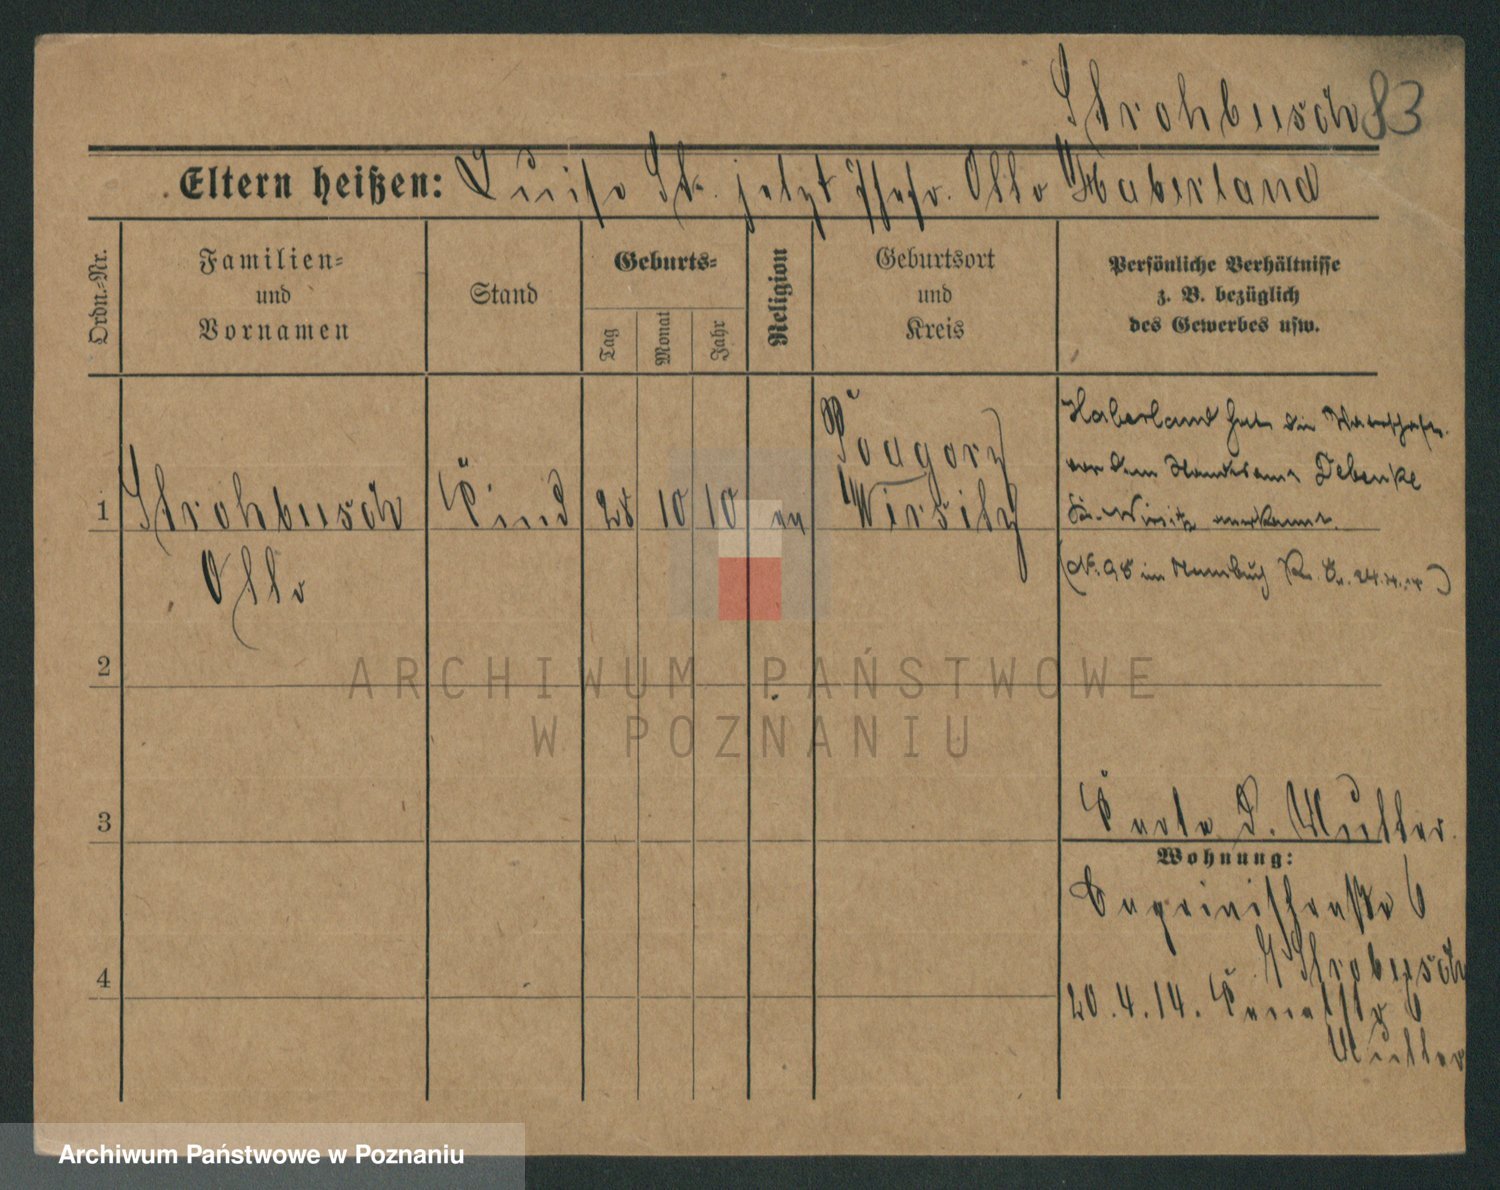 Strohbusch 83
Eltern heißen: Luise St. jetzt Ehefr. Otto Haberland
Ordn.-Nr.
Familien-
und
Vornamen
Stand
Geburts-
Tag
Monat
Jahr
Religion
Geburtsort
und
Kreis
Persönliche Verhältnisse
z. B. bezüglich
des Gewerbes usw.
1
Strohbusch
Otto
Kind
28
10
10
ev
Podgorz
Wirsitz
Haberland hat die Vaterschaft
vor dem Standesamt Debenke
Kr. Wirsitz anerkannt.
(N. 98 im
2
3
4
Karte d. Mutter.
Wohnung:
Caprivistraße 6
b/ Strobusch
20.4.14. Kanalstr 6
Mutter
ARCHIWUM PAŃSTWOWE
W POZNANIU
Archiwum Państwowe w Poznaniu